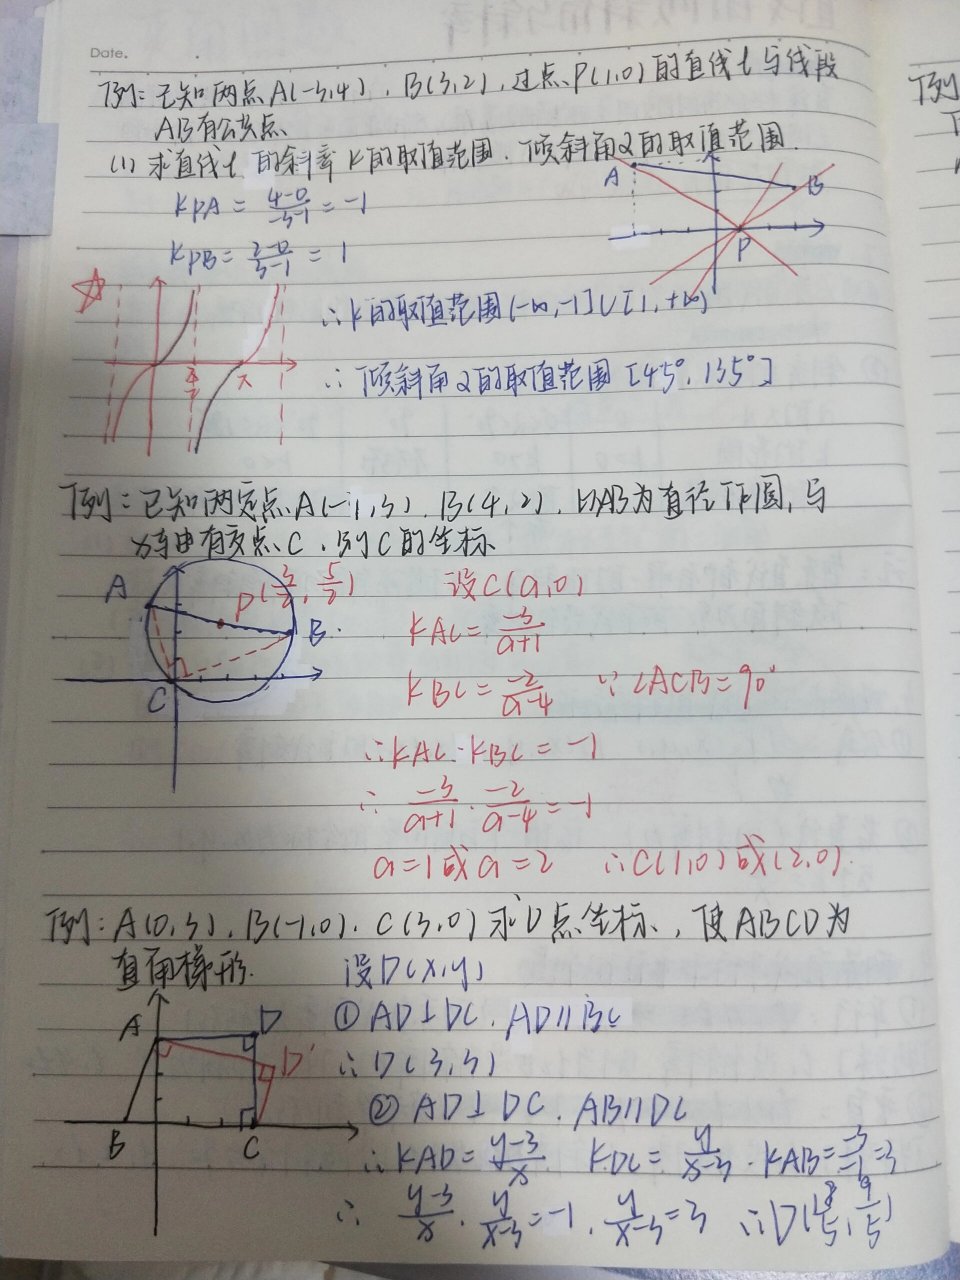 Date.
例：已知两点A(-3,4)，B(3,2)，过点P(1,0)的直线l与线段
AB有公共点
(1) 求直线l的斜率k的取值范围．倾斜角α的取值范围．
KPA = \frac{4-0}{-3-1} = -1
KPB = \frac{2-0}{3-1} = 1
A B P
∴k的取值范围(-∞,-1]∪[1,+∞)
\frac{π}{2} π
∴倾斜角α的取值范围[45°,135°]
例：已知两定点A(-1,3)，B(4,2)，以AB为直径作圆，与
x轴由有交点C，则C的坐标
A P(\frac{3}{2},\frac{5}{2}) B C
设C(a,0)
KAC = \frac{-3}{a+1}
KBC = \frac{-2}{a-4} ∵∠ACB=90°
∴KAC·KBC = -1
∴ \frac{-3}{a+1}·\frac{-2}{a-4} = -1
a=1或a=2 ∴C(1,0)或(2,0).
例：A(0,3)，B(-1,0)，C(3,0)求D点坐标，使ABCD为
直角梯形. 设D(x,y)
A D D' B C
① AD⊥DC．AD∥BC
∴D(3,3)
② AD⊥DC．AB∥DC
∴KAD=\frac{y-3}{x} KDC=\frac{y}{x-3}．KAB=\frac{-3}{-1}=3
∴ \frac{y-3}{x}·\frac{y}{x-3}=-1，\frac{y}{x-3}=3 ∴D(\frac{18}{5},\frac{9}{5})
例